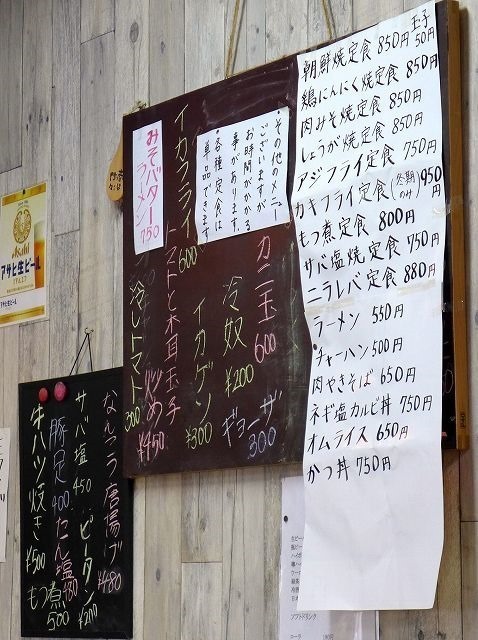 朝鮮焼定食 850円
玉子
50円
鶏にんにく焼定食 850円
肉みそ焼定食 850円
しょうが焼定食 850円
アジフライ定食 750円
カキフライ定食(冬期のみ)950円
もつ煮定食 800円
サバ塩焼定食 750円
ニラレバ定食 880円
ラーメン 550円
チャーハン 500円
肉やきそば 650円
ネギ塩カルビ丼 750円
オムライス 650円
かつ丼 750円
・その他のメニュー
ございますが
お時間がかかる
事があります。
・各種定食は
単品でできます
みそバター
ラーメン
750
カニ玉 600
冷奴 ¥200
ギョーザ 300
イカフライ 600
イカゲソ ¥300
トマトと木耳玉子炒め ¥450
冷しトマト 300
なんこつ唐揚げ ¥480
サバ塩 450
ピータン ¥200
豚足 400
たん塩 480
牛ハツ焼き ¥500
もつ煮 500
Asahi
アサヒ生ビール
ソフトドリンク